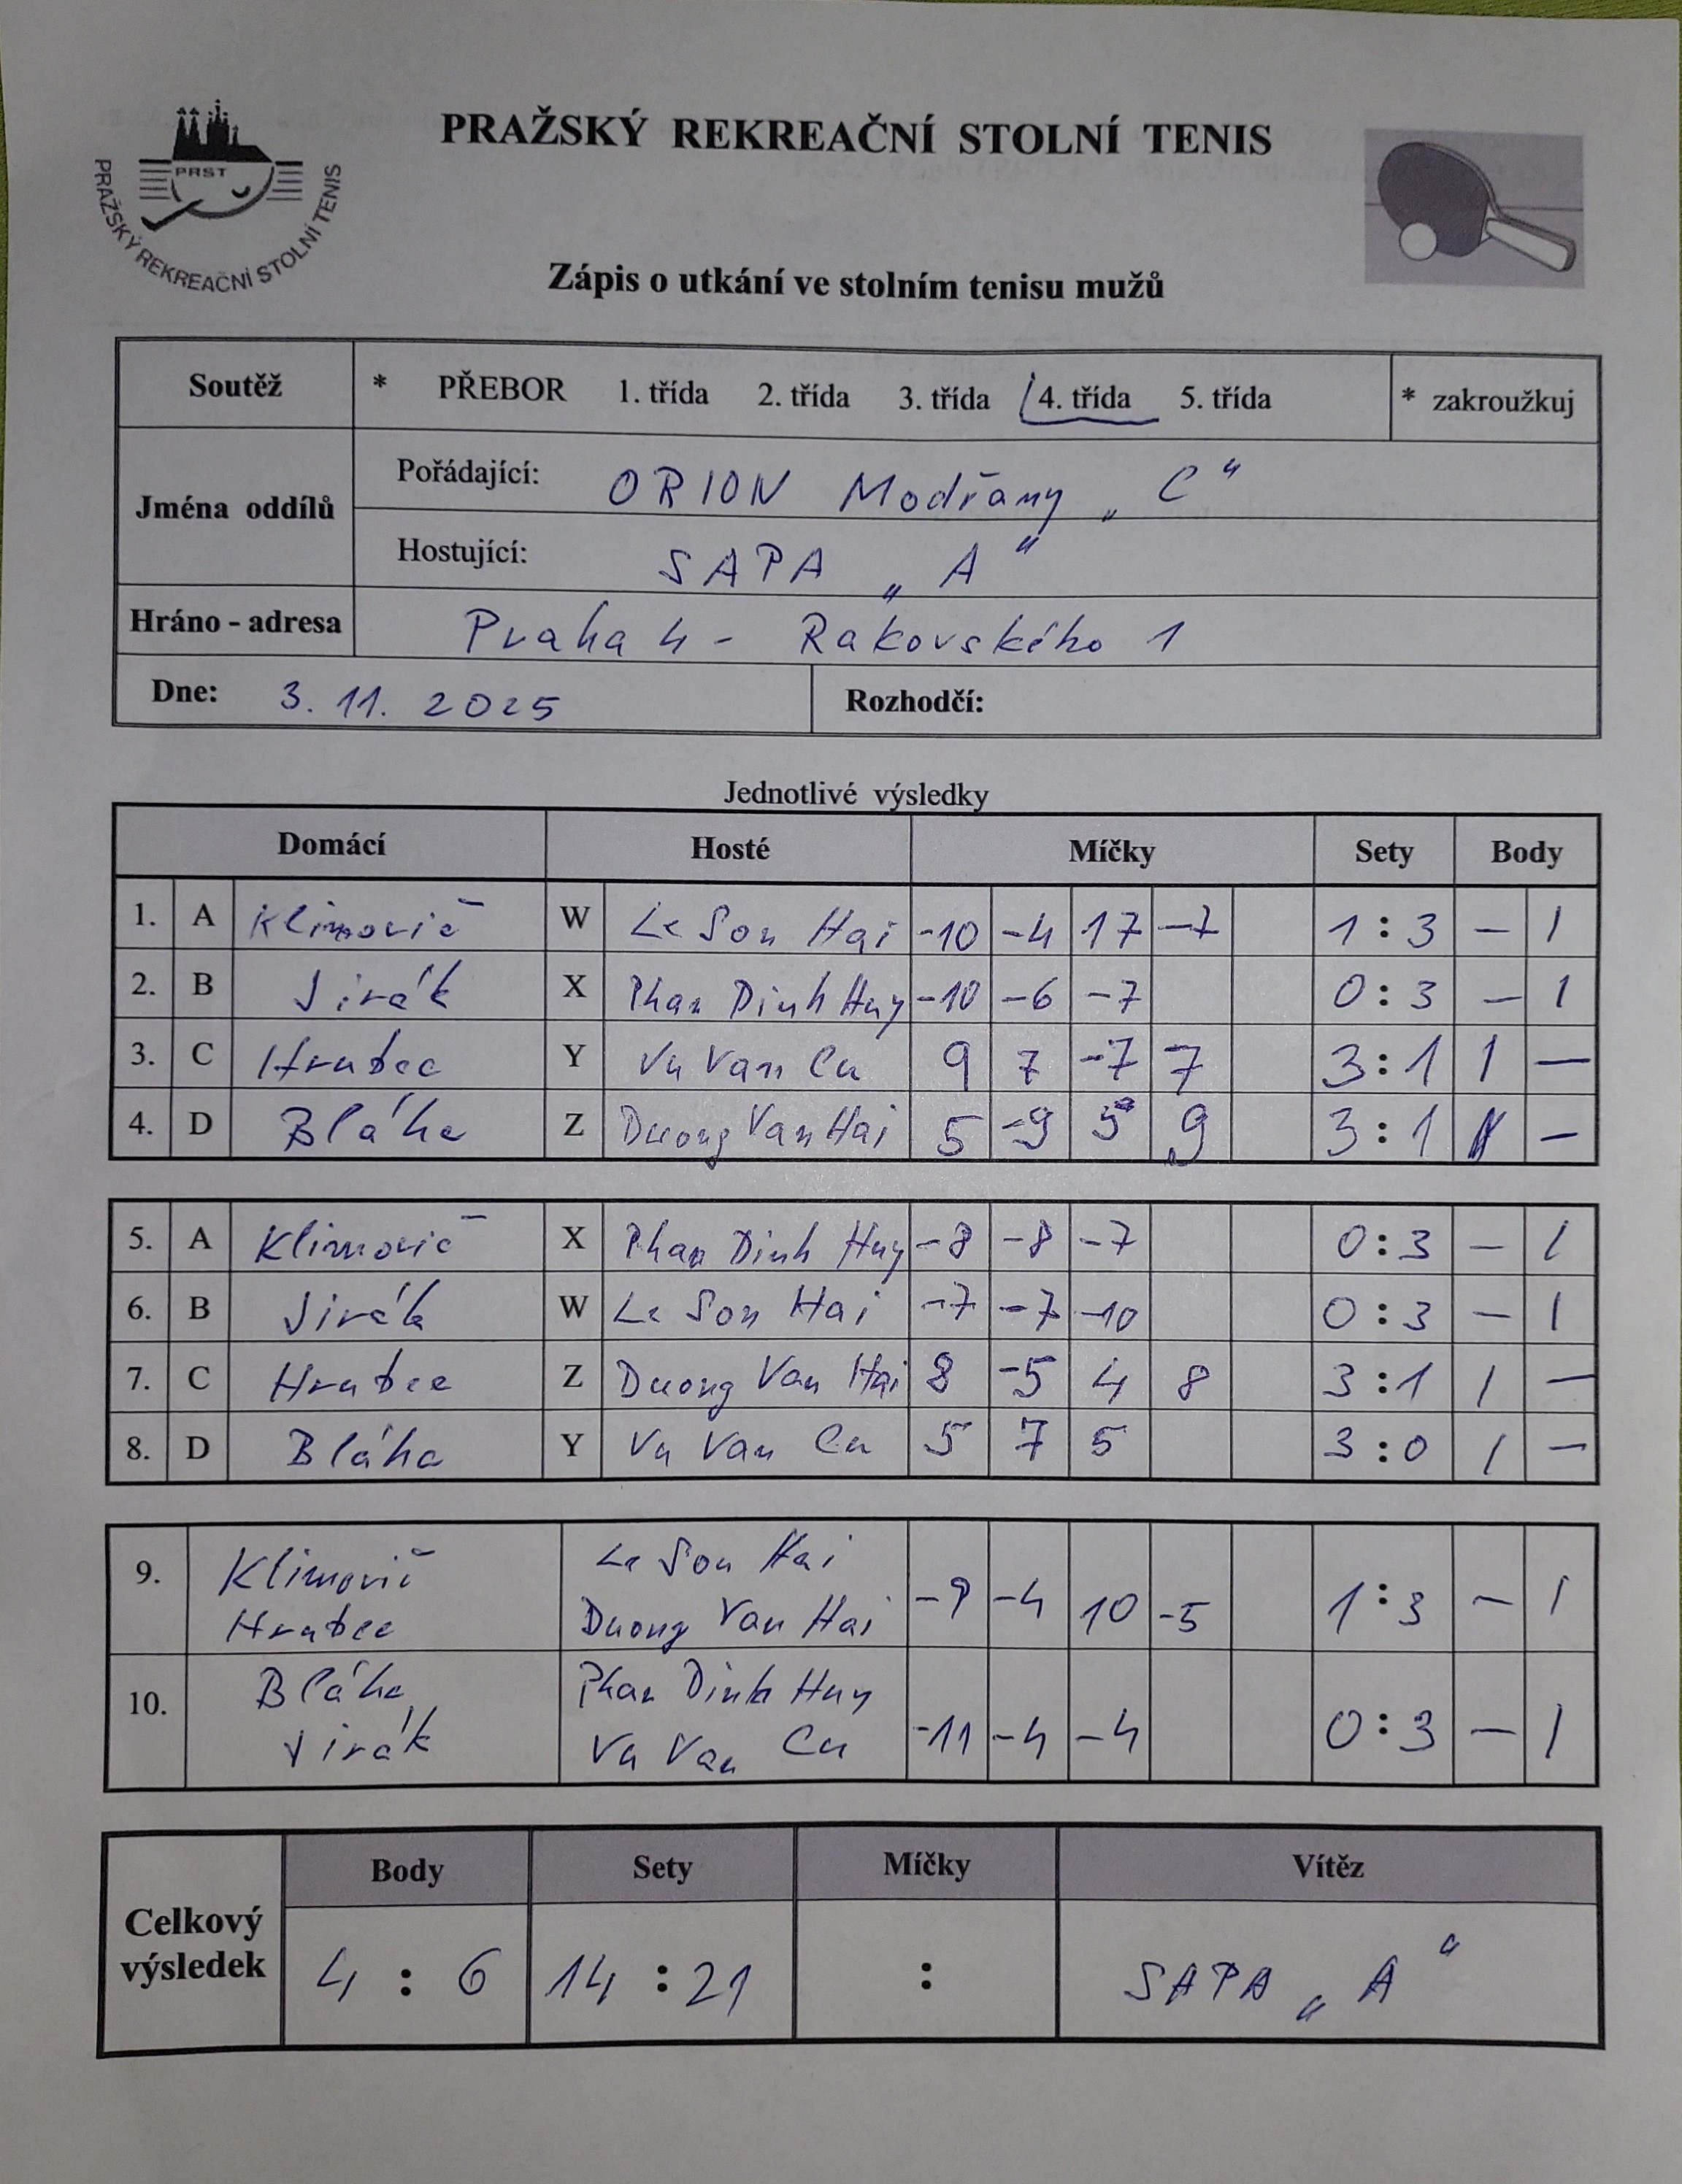 PRAŽSKÝ REKREAČNÍ STOLNÍ TENIS
PRST
PRAŽSKÝ REKREAČNÍ STOLNÍ TENIS
Zápis o utkání ve stolním tenisu mužů
Soutěž * PŘEBOR 1. třída 2. třída 3. třída 4. třída 5. třída * zakroužkuj
Jména oddílů
Pořádající: ORION Modřany „C"
Hostující: SAPA „A"
Hráno - adresa Praha 4 - Rakovského 1
Dne: 3. 11. 2025 Rozhodčí:
Jednotlivé výsledky
Domácí Hosté Míčky Sety Body
1. A Klimovič W Le Son Hai -10 -4 17 -7 1 : 3 - 1
2. B Jirák X Phan Dinh Huy -10 -6 -7 0 : 3 - 1
3. C Hrubec Y Vu Van Cu 9 7 -7 7 3 : 1 1 -
4. D Bláha Z Duong Van Hai 5 -9 5 9 3 : 1 1 -
5. A Klimovič X Phan Dinh Huy -8 -8 -7 0 : 3 - 1
6. B Jirák W Le Son Hai -7 -7 -10 0 : 3 - 1
7. C Hrubec Z Duong Van Hai 8 -5 4 8 3 : 1 1 -
8. D Bláha Y Vu Van Cu 5 7 5 3 : 0 1 -
9. Klimovič Le Son Hai
Hrubec Duong Van Hai -9 -4 10 -5 1 : 3 - 1
10. Bláha Phan Dinh Huy
Jirák Vu Van Cu -11 -4 -4 0 : 3 - 1
Celkový výsledek
Body Sety Míčky Vítěz
4 : 6 14 : 21 : SAPA „A"